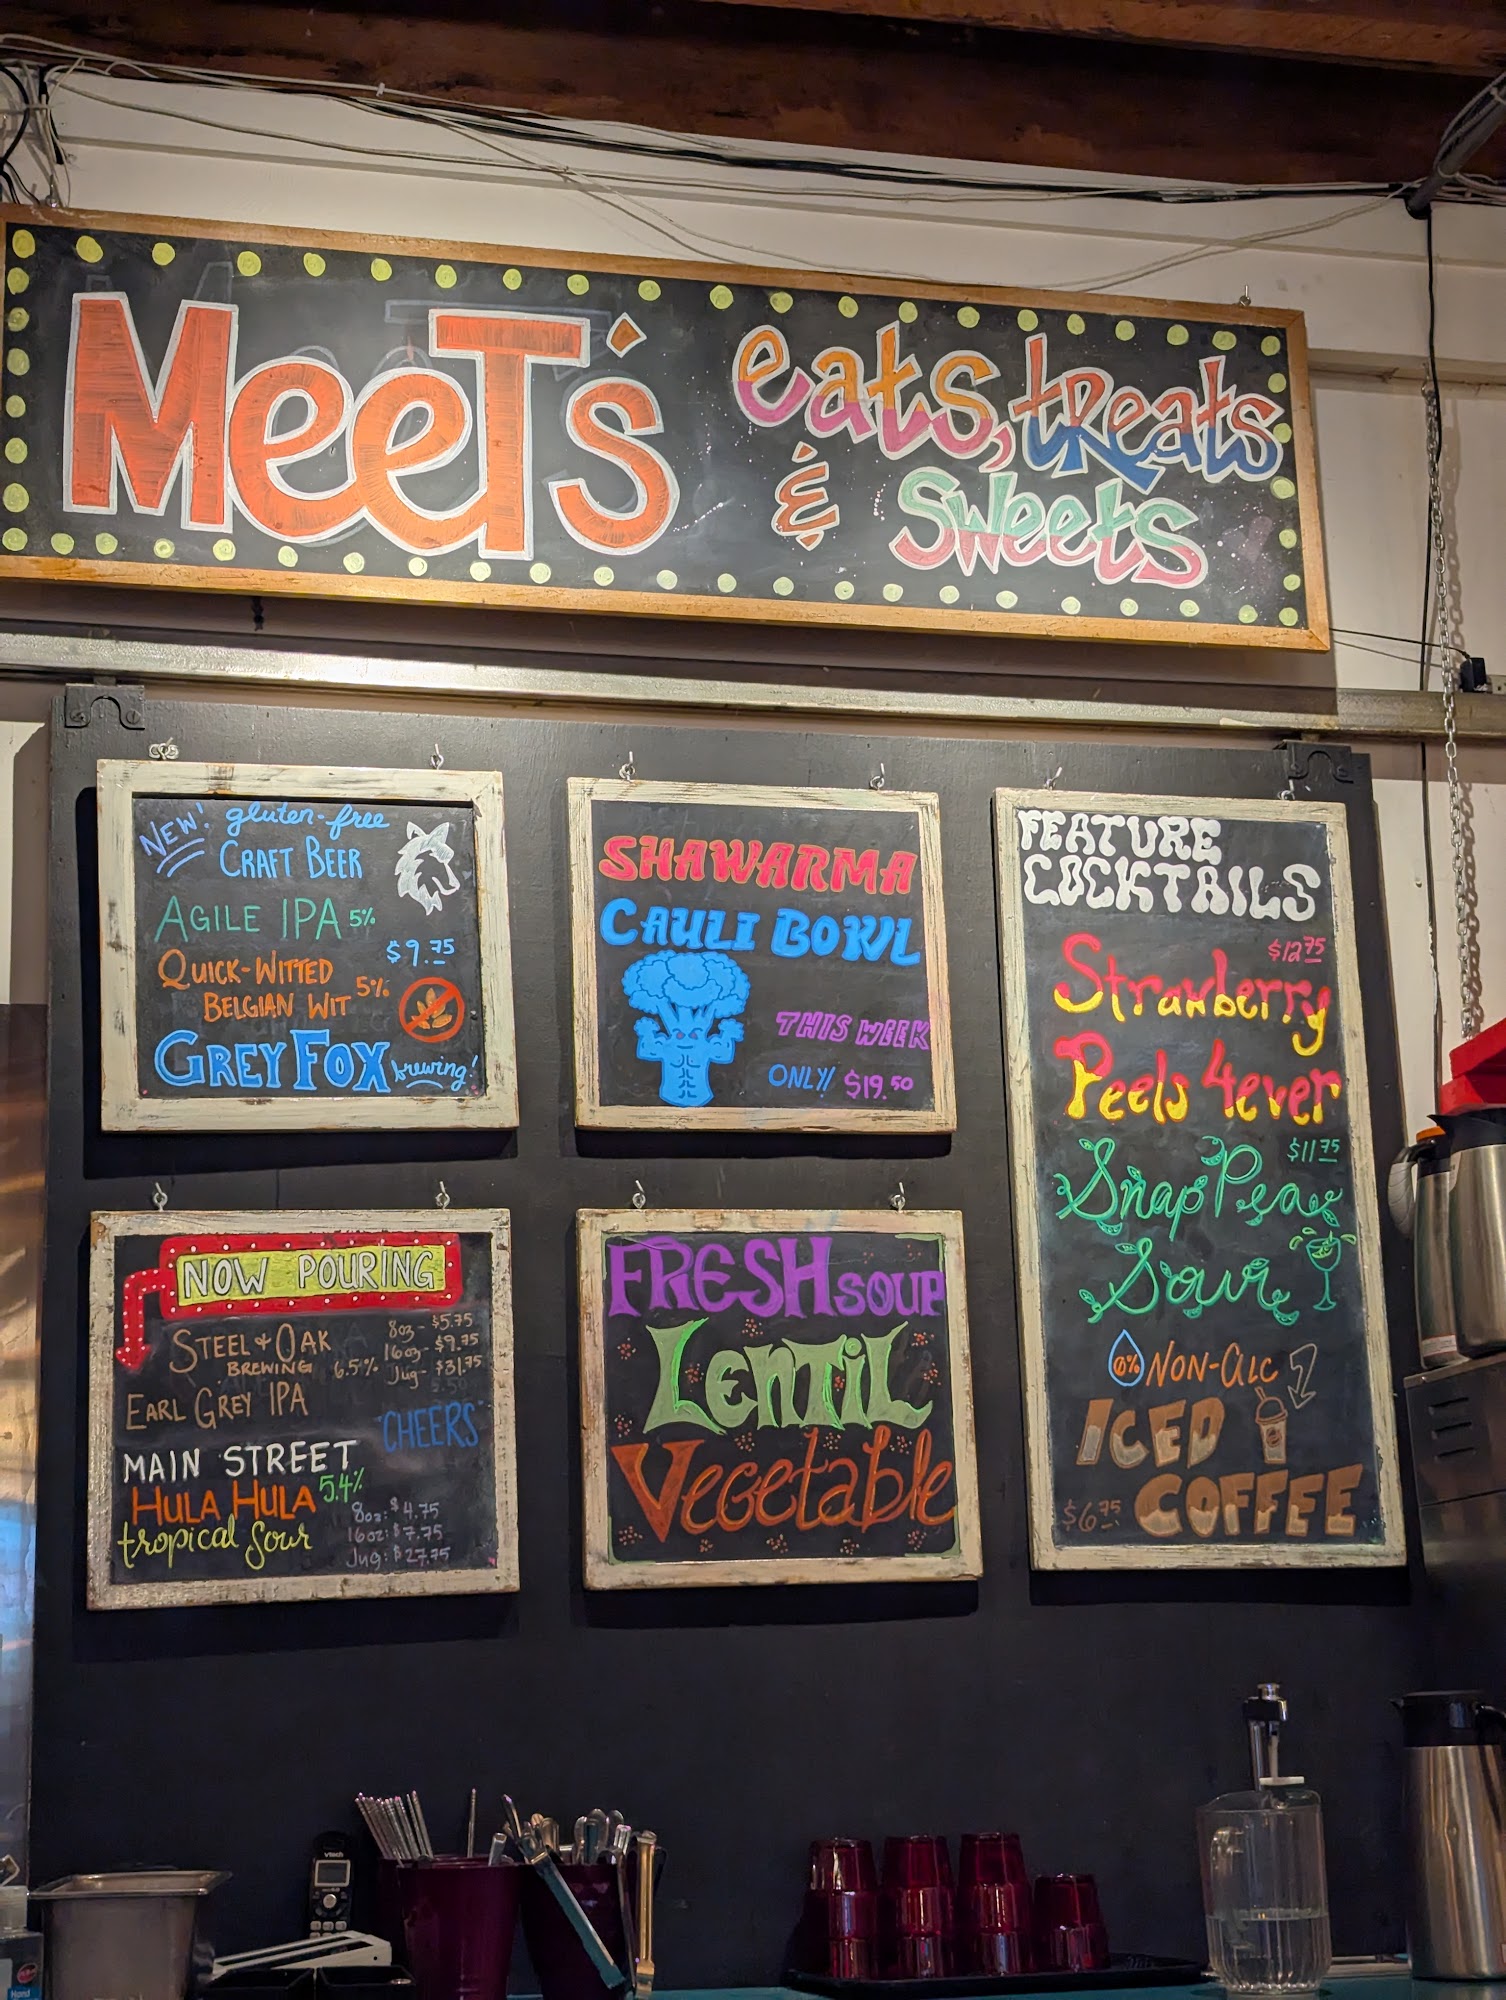 MeeT's eats, treats
& sweets
NEW! gluten-free
CRAFT BEER
AGILE IPA 5%
$9.75
QUICK-WITTED
BELGIAN WIT 5%
GREY FOX brewing!
SHAWARMA
CAULI BOWL
THIS WEEK
ONLY! $19.50
FEATURE
COCKTAILS
$12.75
Strawberry
Peels 4ever
$11.75
Snap Pea
Sour
0% NON-alc
ICED
$6.75 COFFEE
NOW POURING
STEEL & OAK
BREWING 6.5%
8oz- $5.75
16oz- $9.75
Jug- $31.75
EARL GREY IPA
CHEERS
MAIN STREET
HULA HULA 5.4%
tropical sour
8oz: $4.75
16oz: $7.75
Jug: $27.75
FRESH SOUP
LENTIL
VEGETABLE
vtech